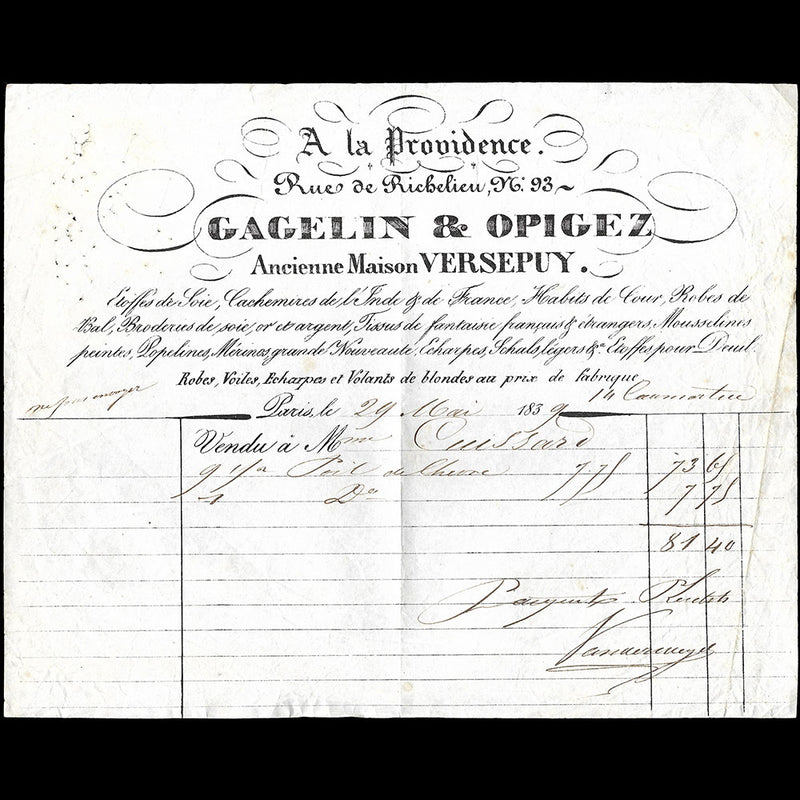 A la Providence.
Rue de Richelieu, No. 93
GAGELIN & OPIGEZ
Ancienne Maison VERSEPUY.
Etoffes de Soie, Cachemires de l'Inde & de France, Habits de Cour, Robes de
Bal, Broderies de soie, or et argent, Tissus de fantaisie français & étrangers, Mousselines
peintes, Popelines, Mérinos grande Nouveauté, Echarpes, Schals légers &a. Etoffes pour Deuil.
Robes, Voiles, Echarpes et Volants de blondes au prix de fabrique
14 Caumartin
Paris, le 29 Mai 1839
Vendu à Mme Cuissard
9 1/2 Poil de Chevre 7.75 73 65
1 Do 7 75
81 40
Pour acquit